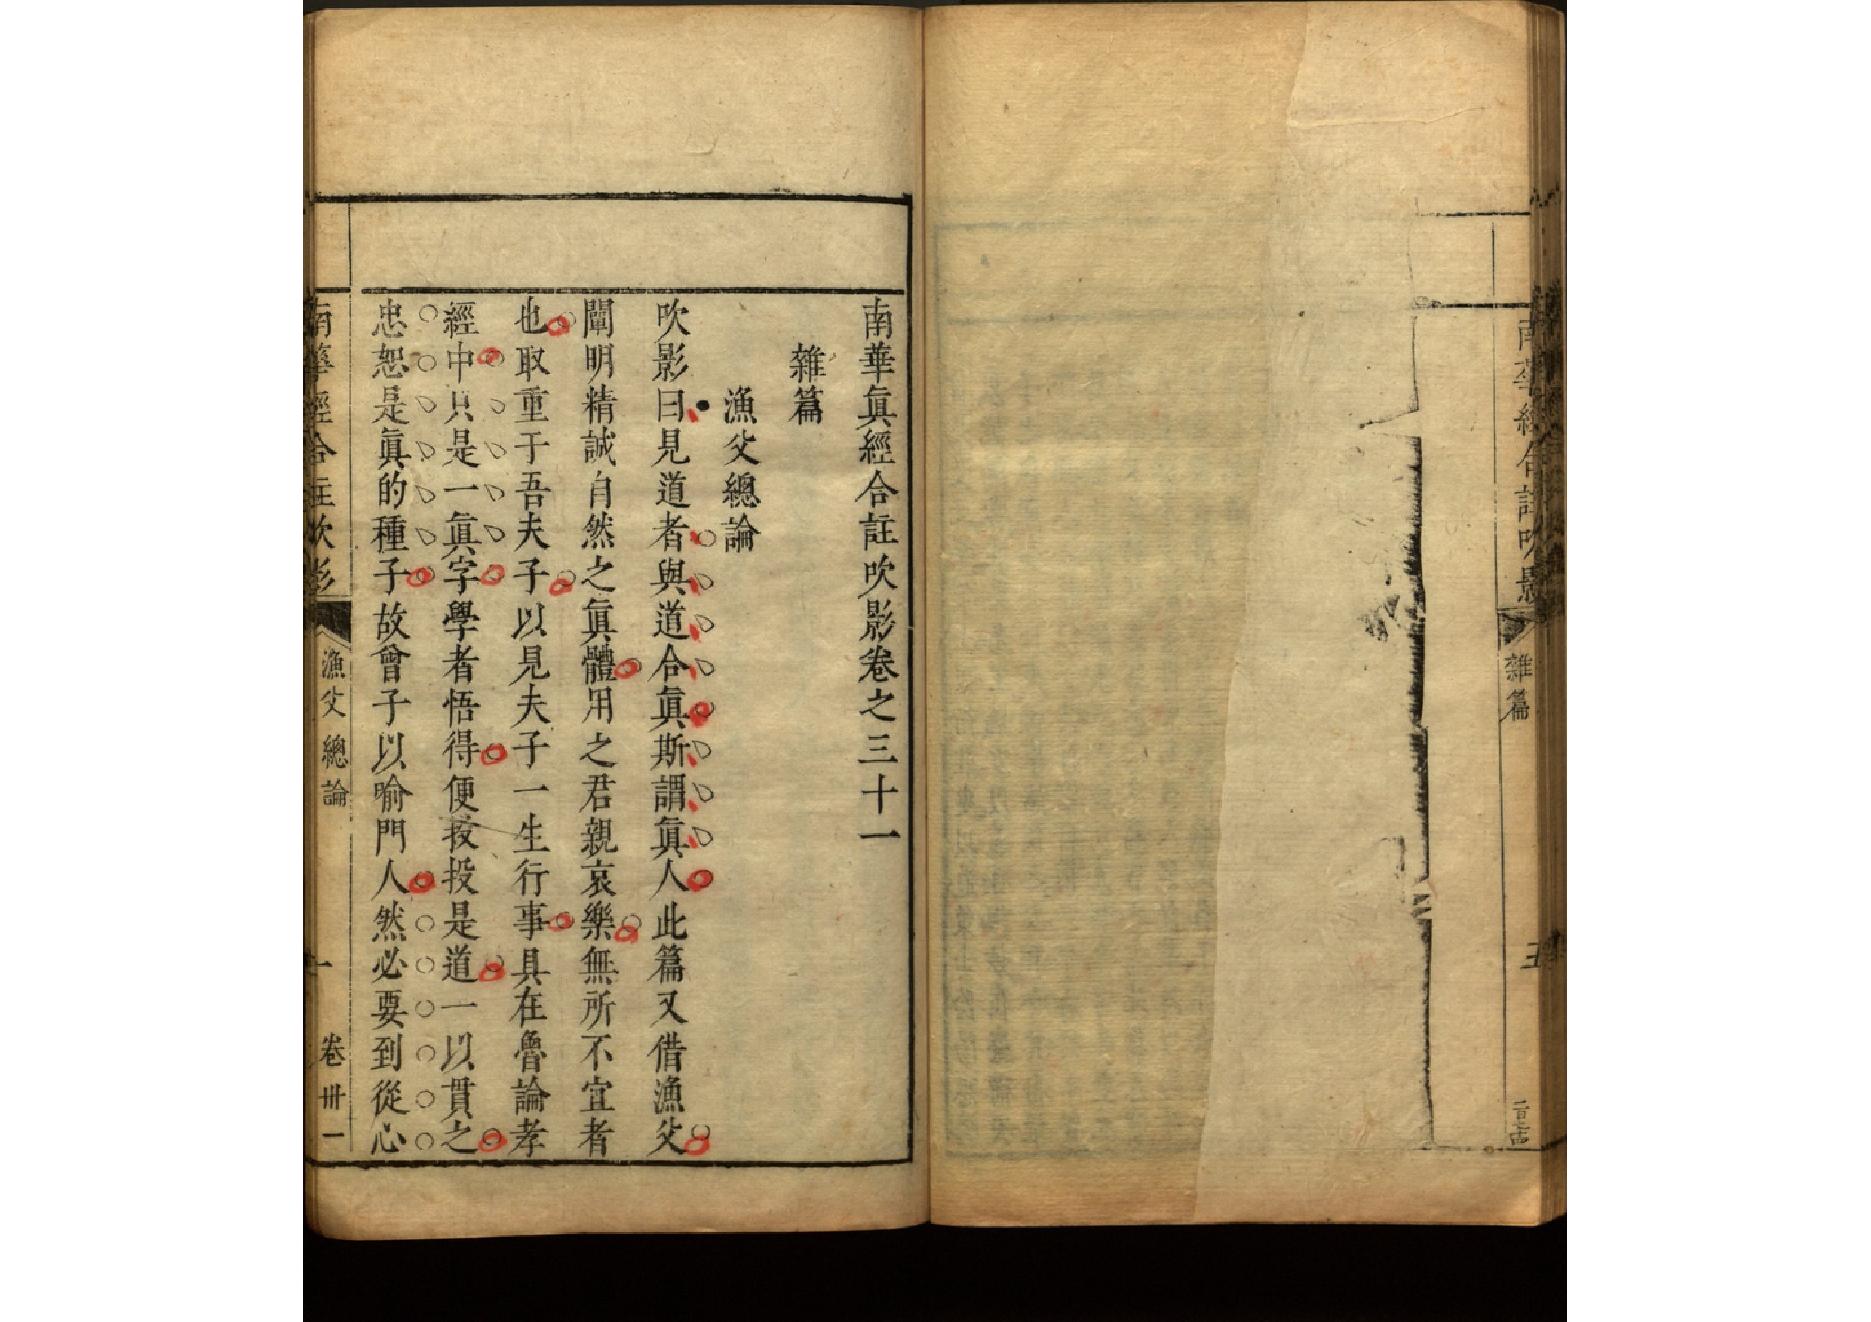 南華經合註吹影
雜篇
南華眞經合註吹影卷之三十一
雜篇
漁父總論
吹影曰見道者與道合眞斯謂眞人此篇又借漁父
闡明精誠自然之眞體用之君親哀樂無所不宜者
也取重于吾夫子以見夫子一生行事具在魯論孝
經中只是一眞字學者悟得便扠投是道一以貫之
忠恕是眞的種子故曾子以喻門人然必要到從心
南華經合註吹影
漁父總論
一
卷卅一